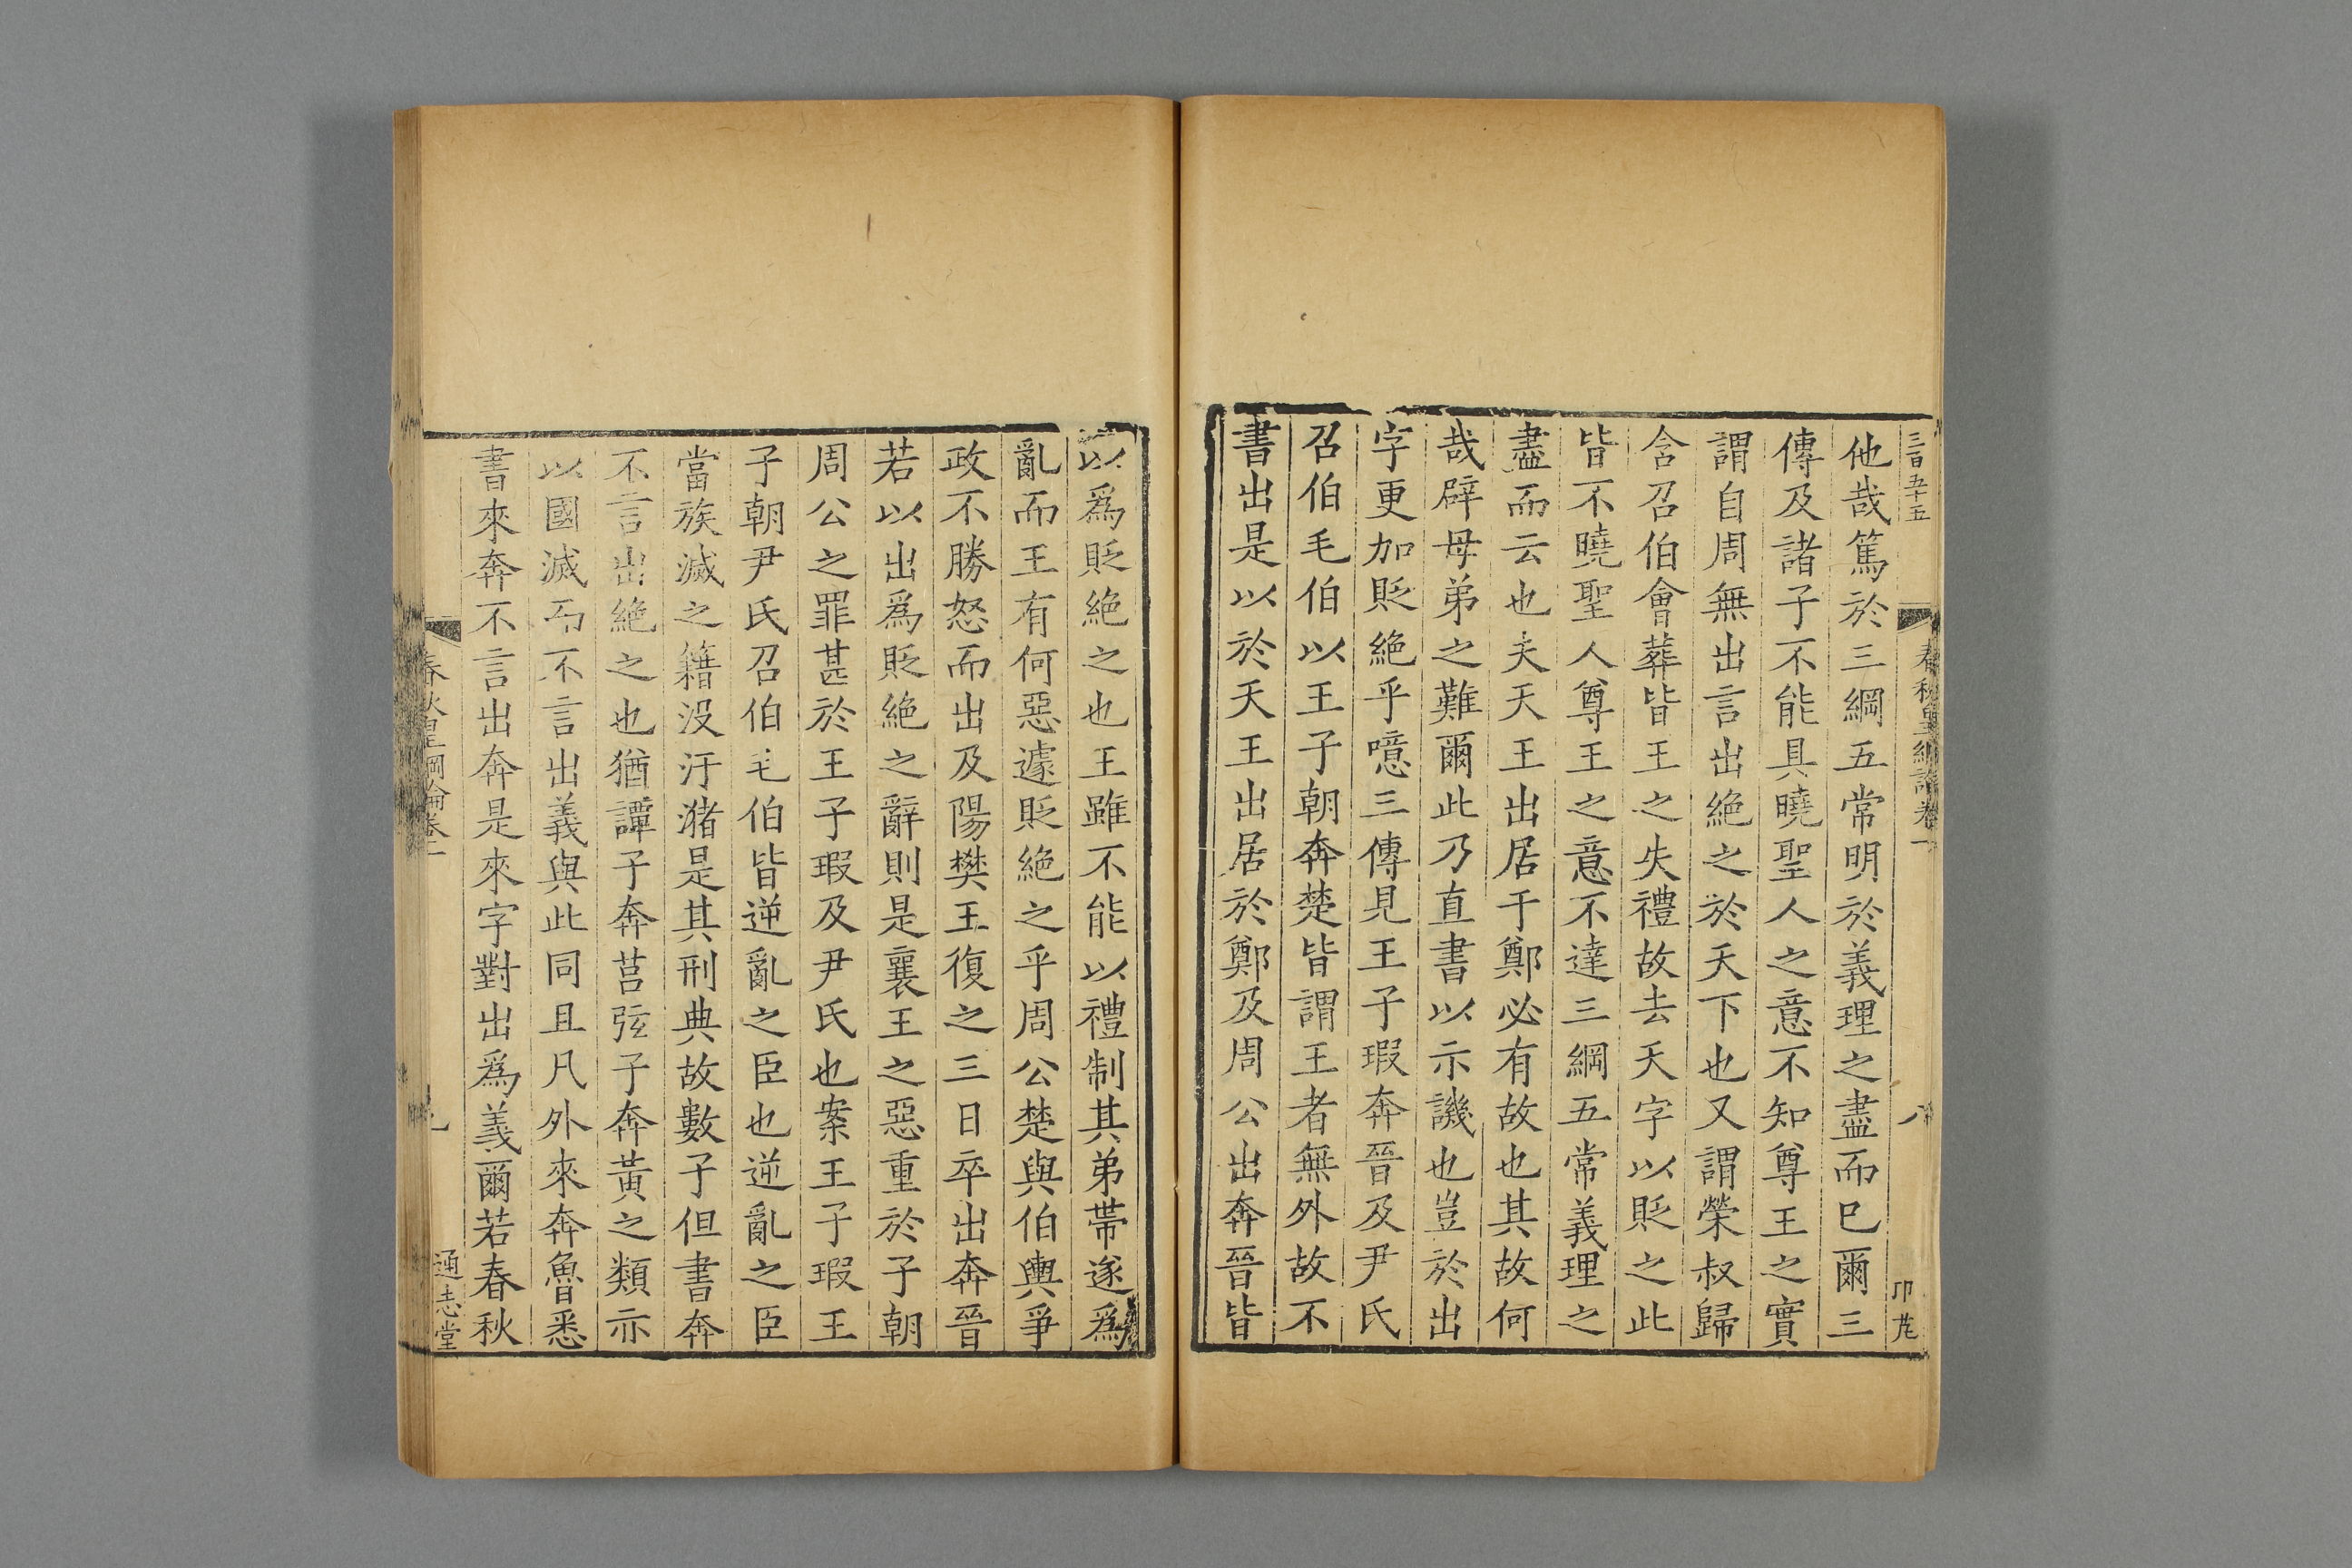 三百五十五
春秋皇綱論卷一
八
他哉篤於三綱五常明於義理之盡而已爾三
傳及諸子不能具曉聖人之意不知尊王之實
謂自周無出言出絶之於天下也又謂榮叔歸
含召伯會葬皆王之失禮故去天字以貶之此
皆不曉聖人尊王之意不達三綱五常義理之
盡而云也夫天王出居于鄭必有故也其故何
哉辟母弟之難爾此乃直書以示譏也豈於出
字更加貶絶乎噫三傳見王子瑕奔晉及尹氏
召伯毛伯以王子朝奔楚皆謂王者無外故不
書出是以於天王出居於鄭及周公出奔晉皆
以爲貶絶之也王雖不能以禮制其弟帶遂爲
亂而王有何惡遽貶絶之乎周公楚與伯輿爭
政不勝怒而出及陽樊王復之三日卒出奔晉
若以出爲貶絶之辭則是襄王之惡重於子朝
周公之罪甚於王子瑕及尹氏也案王子瑕王
子朝尹氏召伯毛伯皆逆亂之臣也逆亂之臣
當族滅之籍没汙潴是其刑典故數子但書奔
不言出絶之也猶譚子奔莒弦子奔黃之類亦
以國滅而不言出義與此同且凡外來奔魯悉
書來奔不言出奔是來字對出爲義爾若春秋
春秋皇綱論卷一
通志堂